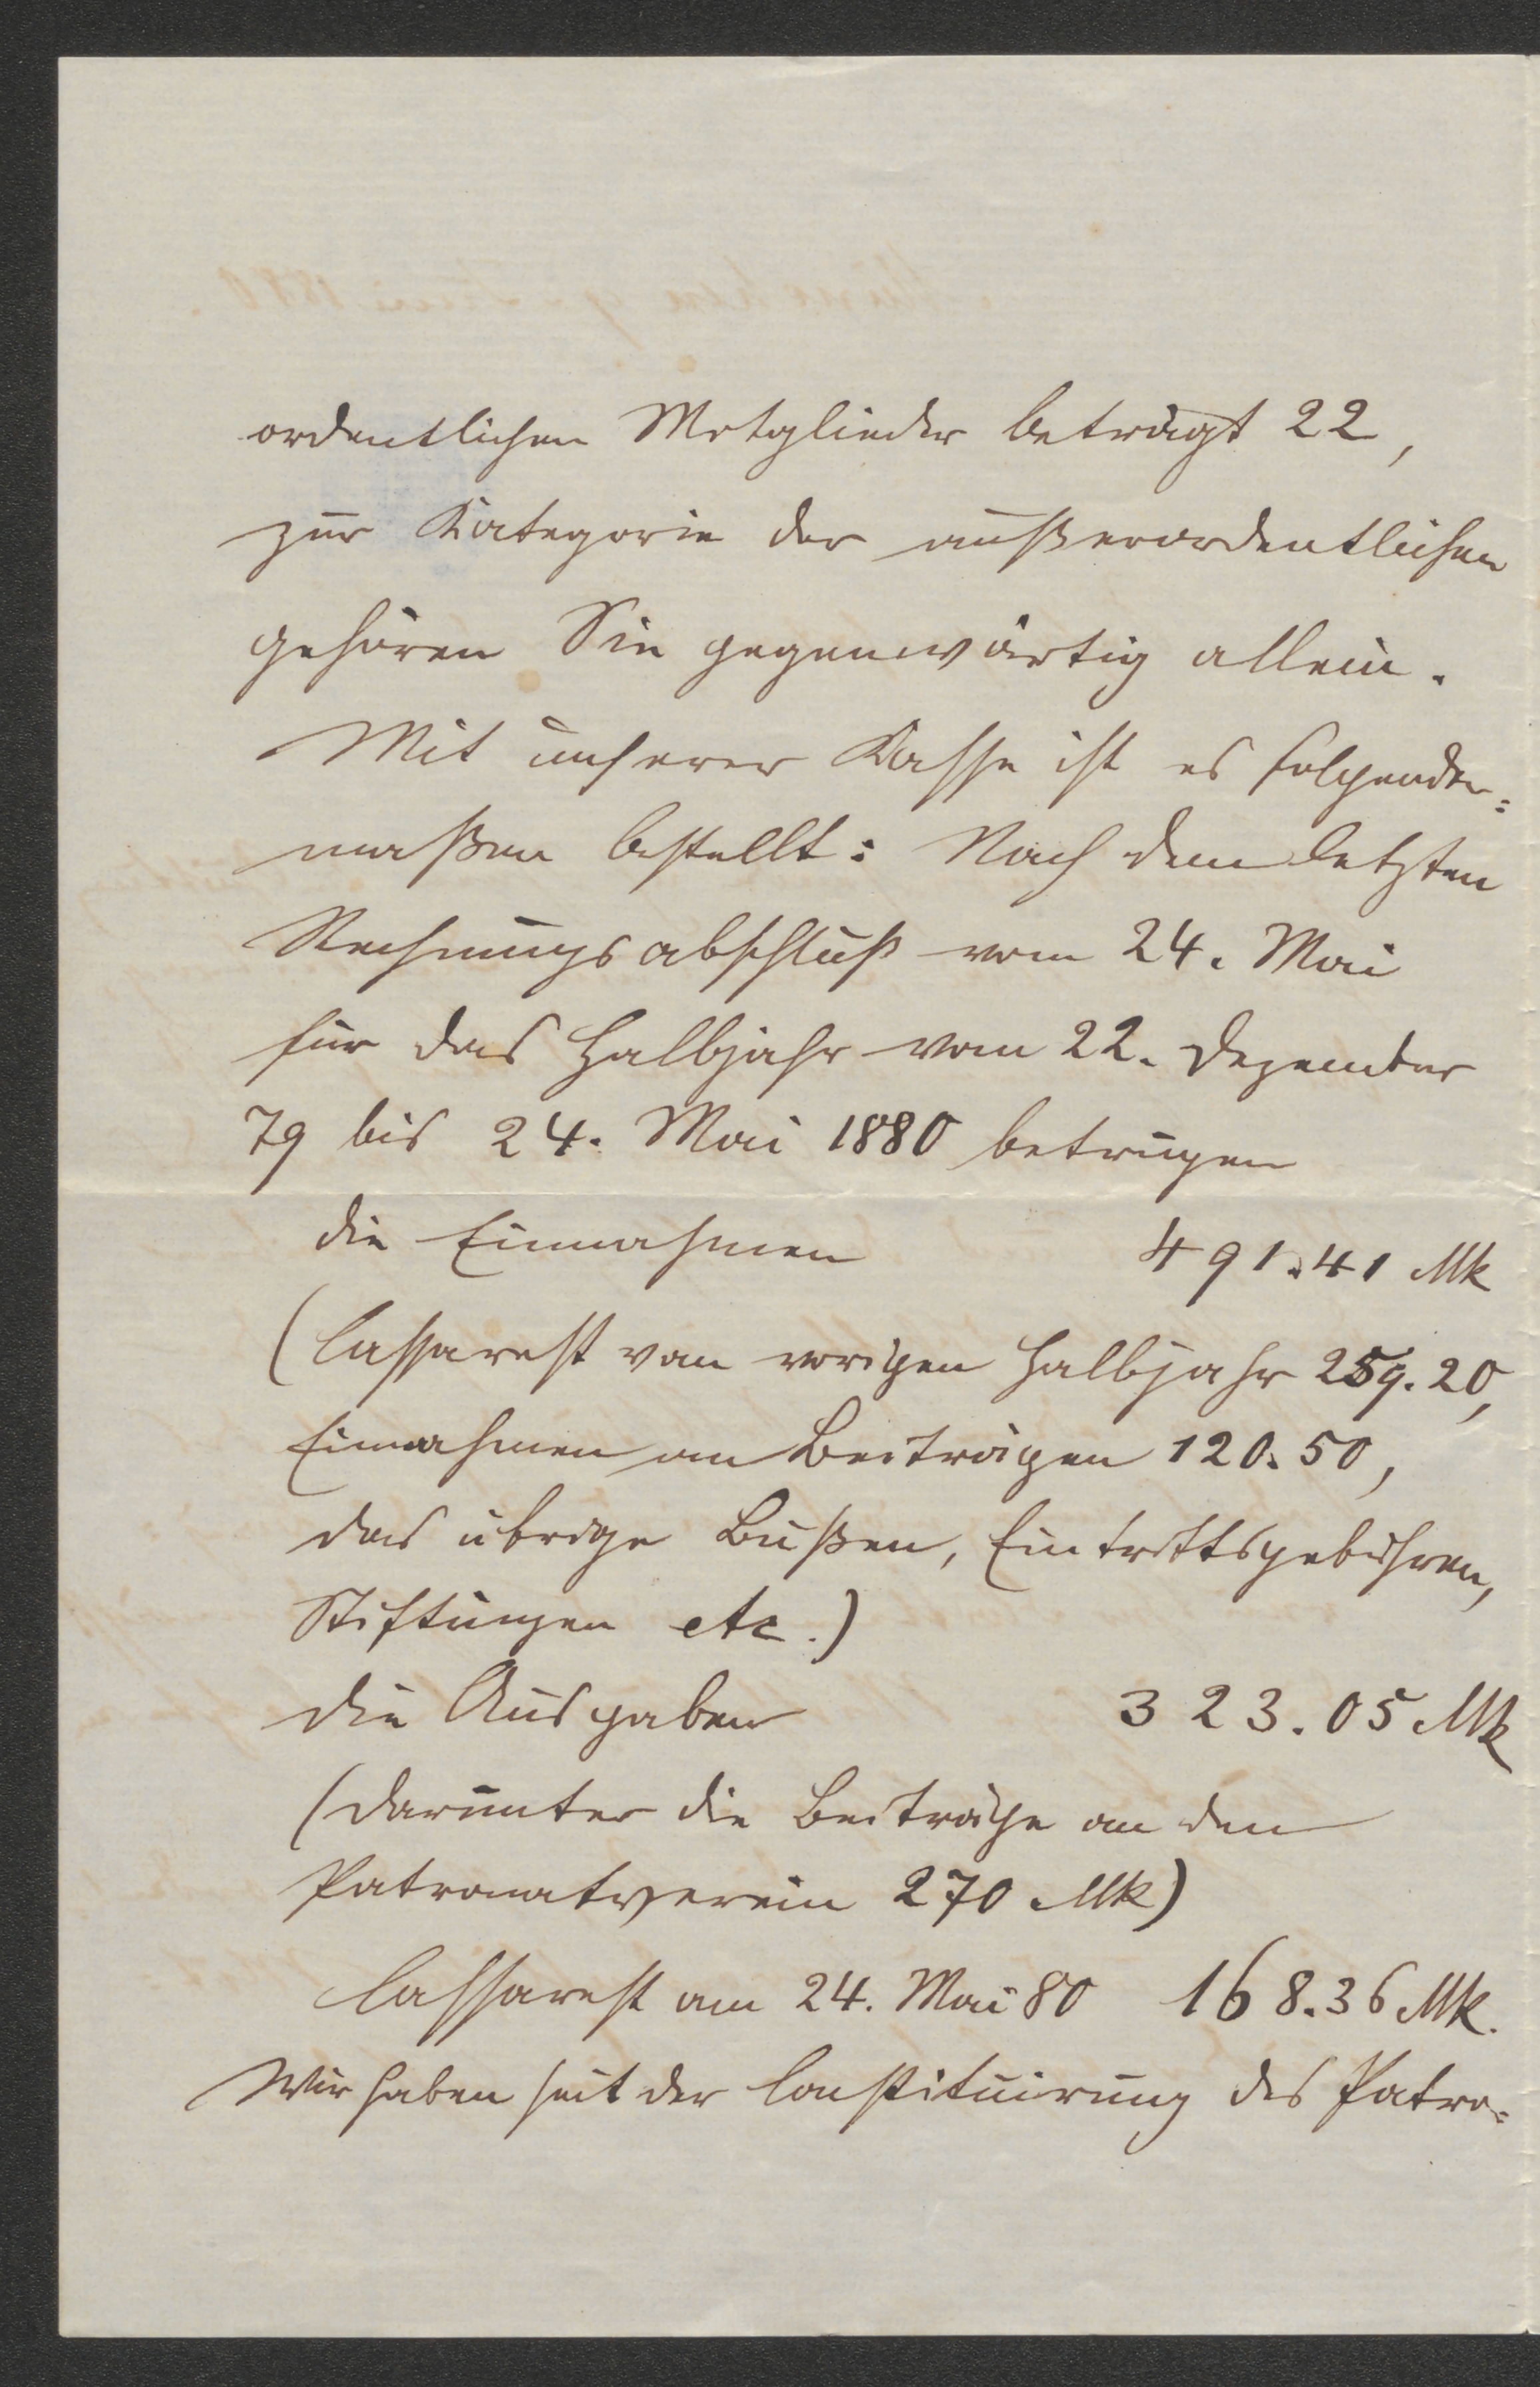 ordentlichen Mitglieder beträgt 22,
zur Kategorie der außerordentlichen
gehören Sie gegenwärtig allein.
Mit unserer Kasse ist es folgender=
maßen bestellt: Nach dem letzten
Rechnungsabschluß vom 24. Mai
für das Halbjahr vom 22. Dezember
79 bis 24. Mai 1880 betrugen
die Einnahmen 491.41 Mk
(Cassarest vom vorigen Halbjahr 259.20,
Einnahmen an Beiträgen 120.50,
das übrige Bußen, Eintrittsgebühren,
Stiftungen etc.)
die Ausgaben 323.05 Mk
(darunter die Beiträge an den
Patronatverein 270 Mk)
Cassarest am 24. Mai 80 168.36 Mk.
Wir haben seit der Constituirung des Patro=